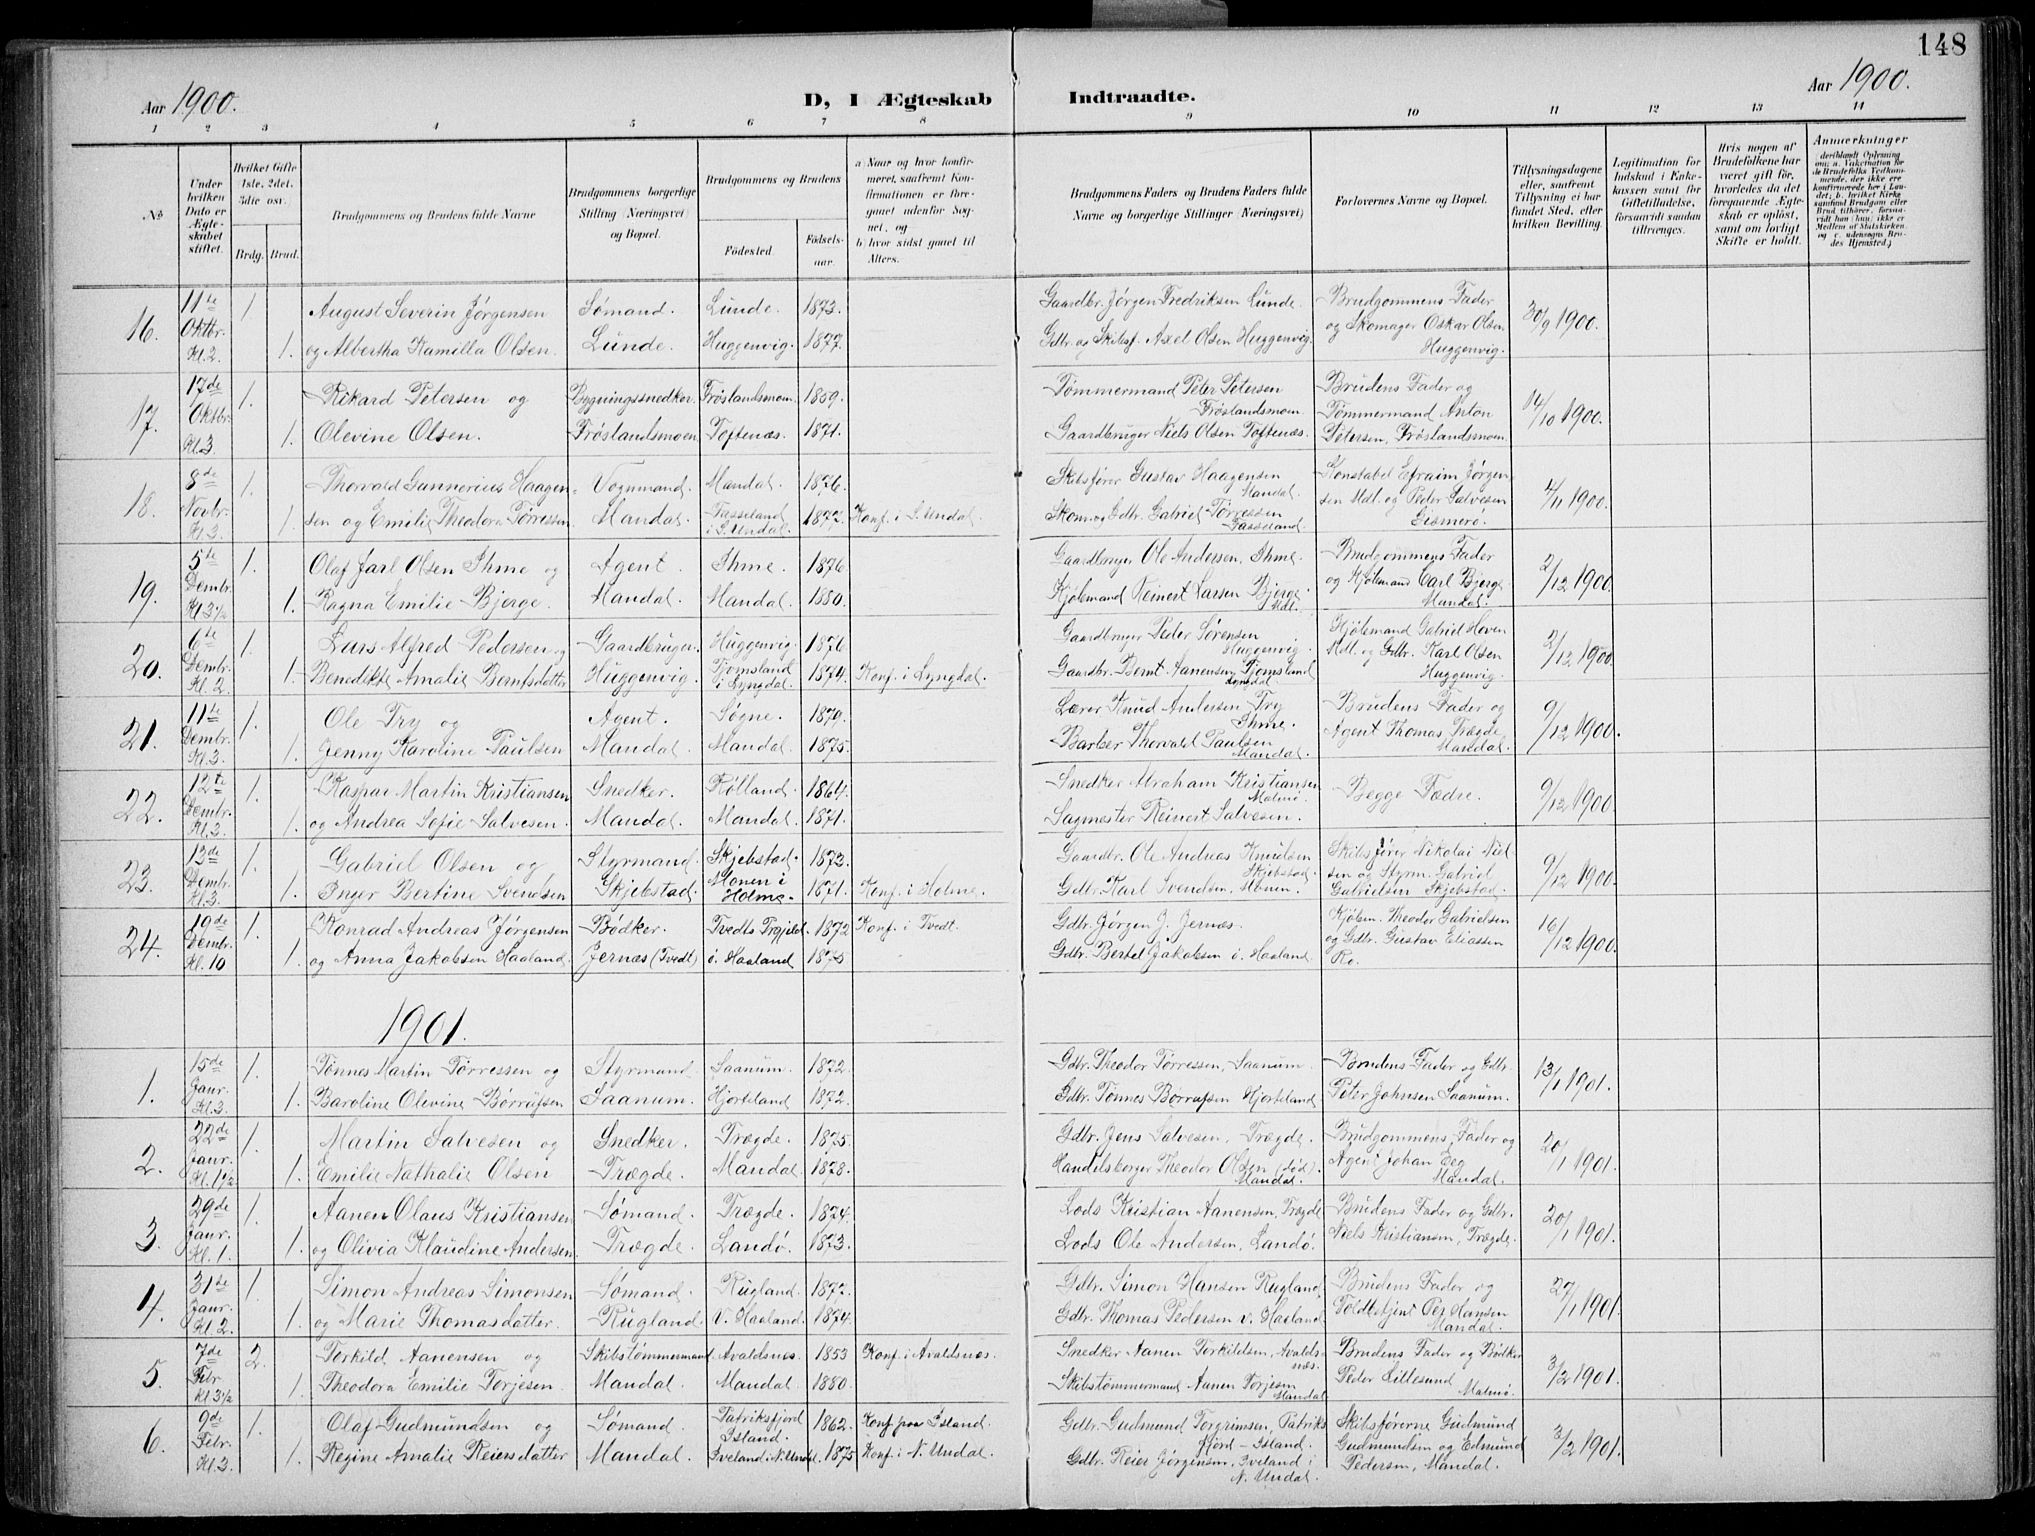 148
Aar 1900.
D, I Ægteskab Indtraadte.
Aar 1900.
1 2 3 4 5 6 7 8 9 10 11 12 13 14
No.
Under hvilken Dato er Ægteskabet stiftet.
Hvilket Gifte 1ste, 2det, 3die osv.
Brdg. Brud.
Brudgommens og Brudens fulde Navne
Brudgommens borgerlige Stilling (Næringsvei) og Bopæl.
Brudgommens og Brudens
Fødested. Fødselsaar.
a) Naar og hvor konfirmeret, saafremt Konfirmationen er foregaaet udenfor Sognet, og
b) hvor sidst gaaet til Alters.
Brudgommens Faders og Brudens Faders fulde Navne og borgerlige Stillinger Næringsvei)
Forlovernes Navne og Bopæl.
Tillysningsdagene eller, saafremt Tillysning ei har fundet Sted, efter hvilken Bevilling.
Legitimation for Indskud i Enkekassen samt for Giftetilladelse, forsaavidt saadan tiltrænges.
Hvis nogen af Brudefolkene har været gift før, hvorledes da det foregaaende Ægteskab er opløst, samt om lovligt Skifte er holdt.
Anmærkninger
16. 11te Oktbr. Kl. 2 1. August Severin Jørgensen Sømand. Lunde. 1873. Gaardbr. Jørgen Fredriksen Lunde. Brudgommens Fader 30/9 1900.
1. og Albertha Kamilla Olsen. Lunde. Huggenvig. 1877. Gdbr. og Skibsf. Axel Olsen Huggenvig. og Skomager Oskar Olsen Huggenvig.
17. 17de Oktbr. Kl. 3 1. Rikard Petersen og Bygningssnedker. Frøslandsmoen. 1859. Tømmermand Peter Petersen Frøslandsmoen Brudens Fader og 14/10 1900.
1. Olevine Olsen. Frøslandsmoen. Toftenæs. 1871. Gaardbruger Niels Olsen Toftenæs. Tømmermand Anton Petersen, Frøslandsmoen.
18. 8de Novbr. Kl. 3. 1. Thorvald Gunnerius Haagen- Vognmand. Mandal. 1876. Skibsfører Gustav Haagensen Mandal. Konstabel Efraim Jørgen- 4/11 1900.
1. sen og Emilie Theodora Tørressen. Mandal. Fasseland i S. Undal. 1877. Konf. i S. Undal. Skom. og Gdbr. Gabriel Tørressen Fasseland. sen Mdl. og Peder Salvesen Gismerø.
19. 5te Dembr. Kl 3 1/2 1. Olaf Jarl Olsen Ihme og Agent. Ihme. 1876 Gaardbruger Ole Andersen, Ihme. Brudgommens Fader 2/12 1900.
1. Ragna Emilie Bjerge. Mandal. Mandal. 1880. Kjøbmand Reinert Larsen Bjerge Mdl. og Kjøbmand Carl Bjerge Mandal.
20. 6te Dembr. Kl. 2 1. Lars Alfred Pedersen og Gaardbruger. Huggenvig. 1876. Gaardbruger Peder Sørensen Huggenvig. Kjøbmand Gabriel Hoven 2/12 1900.
1. Benedikte Amalie Berntsdatter Huggenvig. Tjomsland i Lyngdal. 1874. Konf. i Lyngdal. Gaardbr. Bernt Aanensen, Tjomsland Lyngdal. Mdl. og Gdbr. Karl Olsen Huggenvig.
21. 11te Dembr. Kl. 3. 1. Ole Try og Agent. Søgne. 1870. Lærer Knud Andersen Try Ihme. Brudens Fader og 9/12 1900.
1. Jenny Karoline Paulsen Mandal. Mandal. 1875. Barber Thorvald Paulsen Mandal. Agent Thomas Trægde Mandal.
22. 12te Dembr. Kl. 3. 1. Kaspar Martin Kristiansen Snedker. Kølland. 1864. Snedker Abraham Kristiansen Malmø. Begge Fædre. 9/12 1900
1. og Andrea Sofie Salvesen. Mandal. Mandal. 1871. Sagmester Reinert Salvesen.
23. 13de Dembr. Kl. 3. 1. Gabriel Olsen og Styrmand. Skjebstad. 1873. Gaardbr. Ole Andreas Knudsen Skjebstad. Skibsfører Nikolai Niel- 9/12 1900.
1. Inger Bertine Svendsen Skjebstad. Monen i Holme. 1871. Konf. i Holme. Gdbr. Karl Svendsen, Monen. sen og Styrm. Gabriel Gabrielsen Skjebstad.
24. 19de Dembr. Kl. 10 1. Konrad Andreas Jørgensen Bødker. Tvedts Prgjeld. 1872 Konf. i Tvedt. Gdbr. Jørgen J. Jernæs. Kjøbm. Theodor Gabrielsen 16/12 1900.
1. og Anna Jakobsen Haaland. Jernæs (Tvedt) i. Haaland 1875 Gdbr. Bertel Jakobsen i. Haaland. og Gdbr. Gustav Eliassen Ro.
1901.
1. 15de Janr. Kl. 3. 1. Tønnes Martin Tørressen og Styrmand. Saanum. 1872. Gdbr. Theodor Tørressen, Saanum. Brudens Fader og Gdbr. 13/1 1901.
1. Baroline Olevine Børrufsen Saanum. Hjorteland 1872. Gdbr. Tønnes Børrufsen Hjorteland Peter Johnsen Saanum.
2. 22de Janr. Kl. 1 1/2 1. Martin Salvesen og Snedker. Trægde. 1875. Gdbr. Jens Salvesen, Trægde. Brudgommens Fader og 20/1 1901.
1. Emilie Nathalie Olsen Trægde. Mandal. 1878. Handelsborger Theodor Olsen (død). Mandal. Agent Johan Eeg Mandal.
3. 29de Janr. Kl. 1. 1. Aanen Olaus Kristiansen Sømand. Trægde. 1874. Lods Kristian Aanensen, Trægde Brudens Fader og Gdbr. 20/1 1901.
1. og Olivia Klaudine Andersen. Trægde. Landø. 1873. Lods Ole Andersen, Landø. Niels Kristiansen, Trægde.
4. 31de Janr. Kl. 2. 1. Simon Andreas Simonsen Sømand. Rugland. 1877. Gdbr. Simon Hansen Rugland Brudens Fader og 27/1 1901.
1. og Marie Thomasdatter. Rugland. V. Haaland. 1874. Gdbr. Thomas Pedersen v. Haaland Toldbetjent Per Hansen Mandal.
5. 7de Febr Kl 3 1/2 2. Torkild Aanensen og Skibstømmermand Avaldsnæs. 1853 Konf. i Avaldsnæs. Snedker Aanen Torkildsen, Avalds-næs. Brudens Fader og Bødker 3/2 1901.
1. Theodora Emilie Torjesen. Mandal. Mandal. 1880. Skibstømmermand Aanen Torjesen Mandal Peder Lillesund Malmø.
6. 9de Febr. Kl. 3. 1. Olaf Gudmundsen og Sømand. Patriksfjord Island. 1862. Konf. paa Island. Gdbr. Gudmund Torgrimsen, Patriks fjord - Island. Skibsførerne Gudmund 3/2 1901.
1. Regine Amalie Reiersdatter Mandal. Iveland i N. Undal. 1875 Konf. i N. Undal. Gdbr. Reier Jørgensen, Iveland i N. Undal. Gudmundsen og Edmund Pedersen, Mandal.